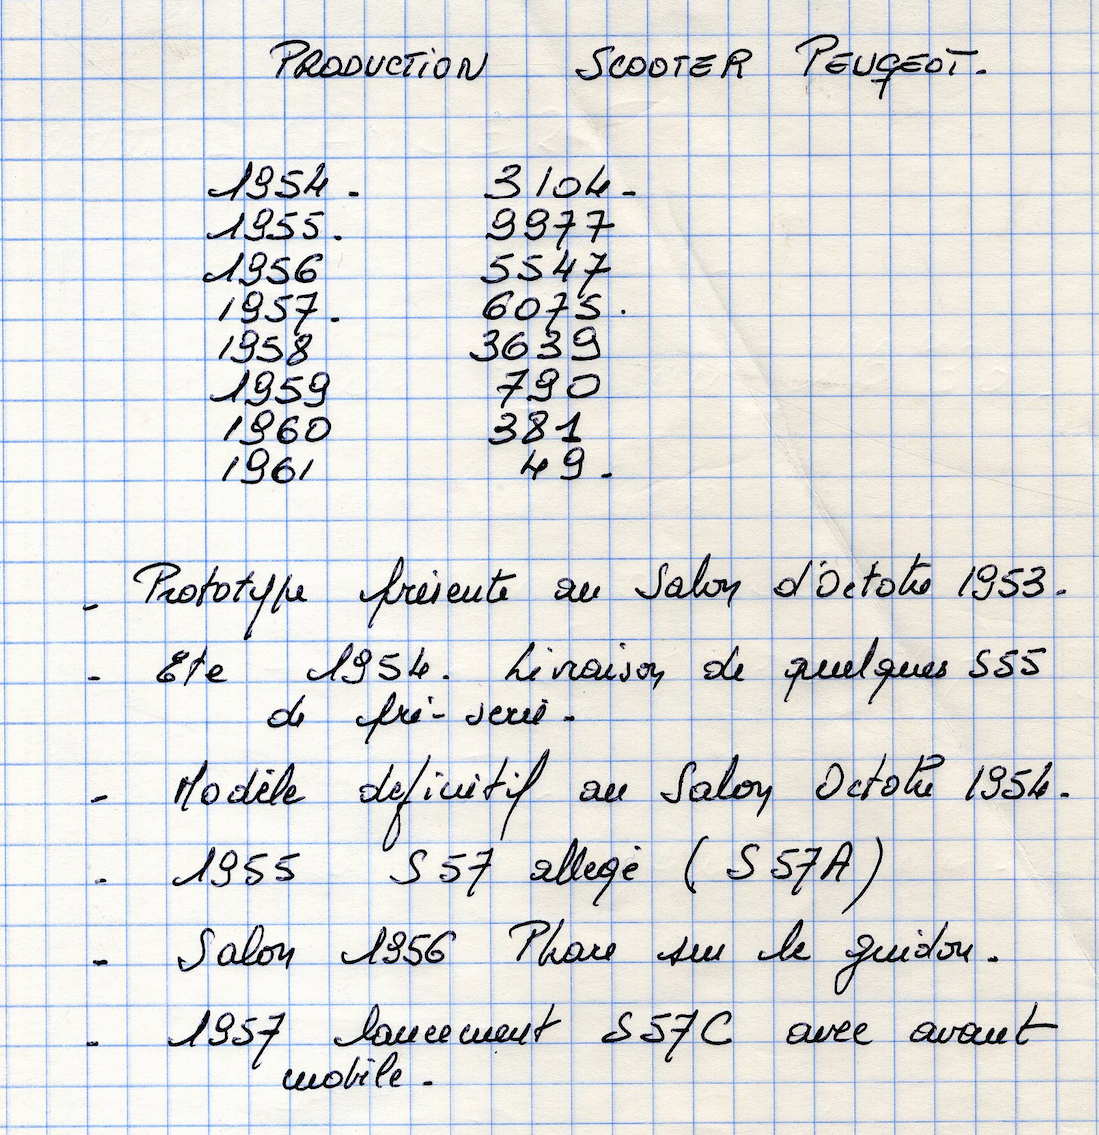 PRODUCTION SCOOTER PEUGEOT.
1954. 3104.
1955. 9977
1956 5547
1957. 6075.
1958 3639
1959 790
1960 381
1961 49.
- Prototype présenté au Salon d'Octobre 1953.
- Eté 1954. Livraison de quelques S55
de pré-serie.
- Modèle definitif au Salon Octobre 1954.
- 1955 S57 allegé (S57A)
- Salon 1956 Phare sur le guidon.
- 1957 lancement S57C avec avant
mobile.